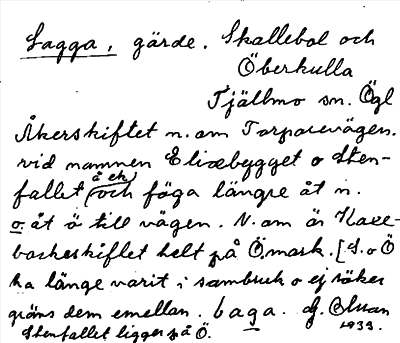 Lagga, gärde. Skallebol och
Överkulla
Tjällmo sn. Ögl
Åkerskiftet n. om Torparevägen.
vid namnen Elisebygget o Sten-
fallet (å ek) och föga längre åt n.
o. åt ö till vägen. N. om är Hare-
backeskiftet helt på Ö. mark. [S. o Ö
ha länge varit i sambruk o ej säker
gräns dem emellan. laga.
1933.
Stenfallet ligger på Ö.